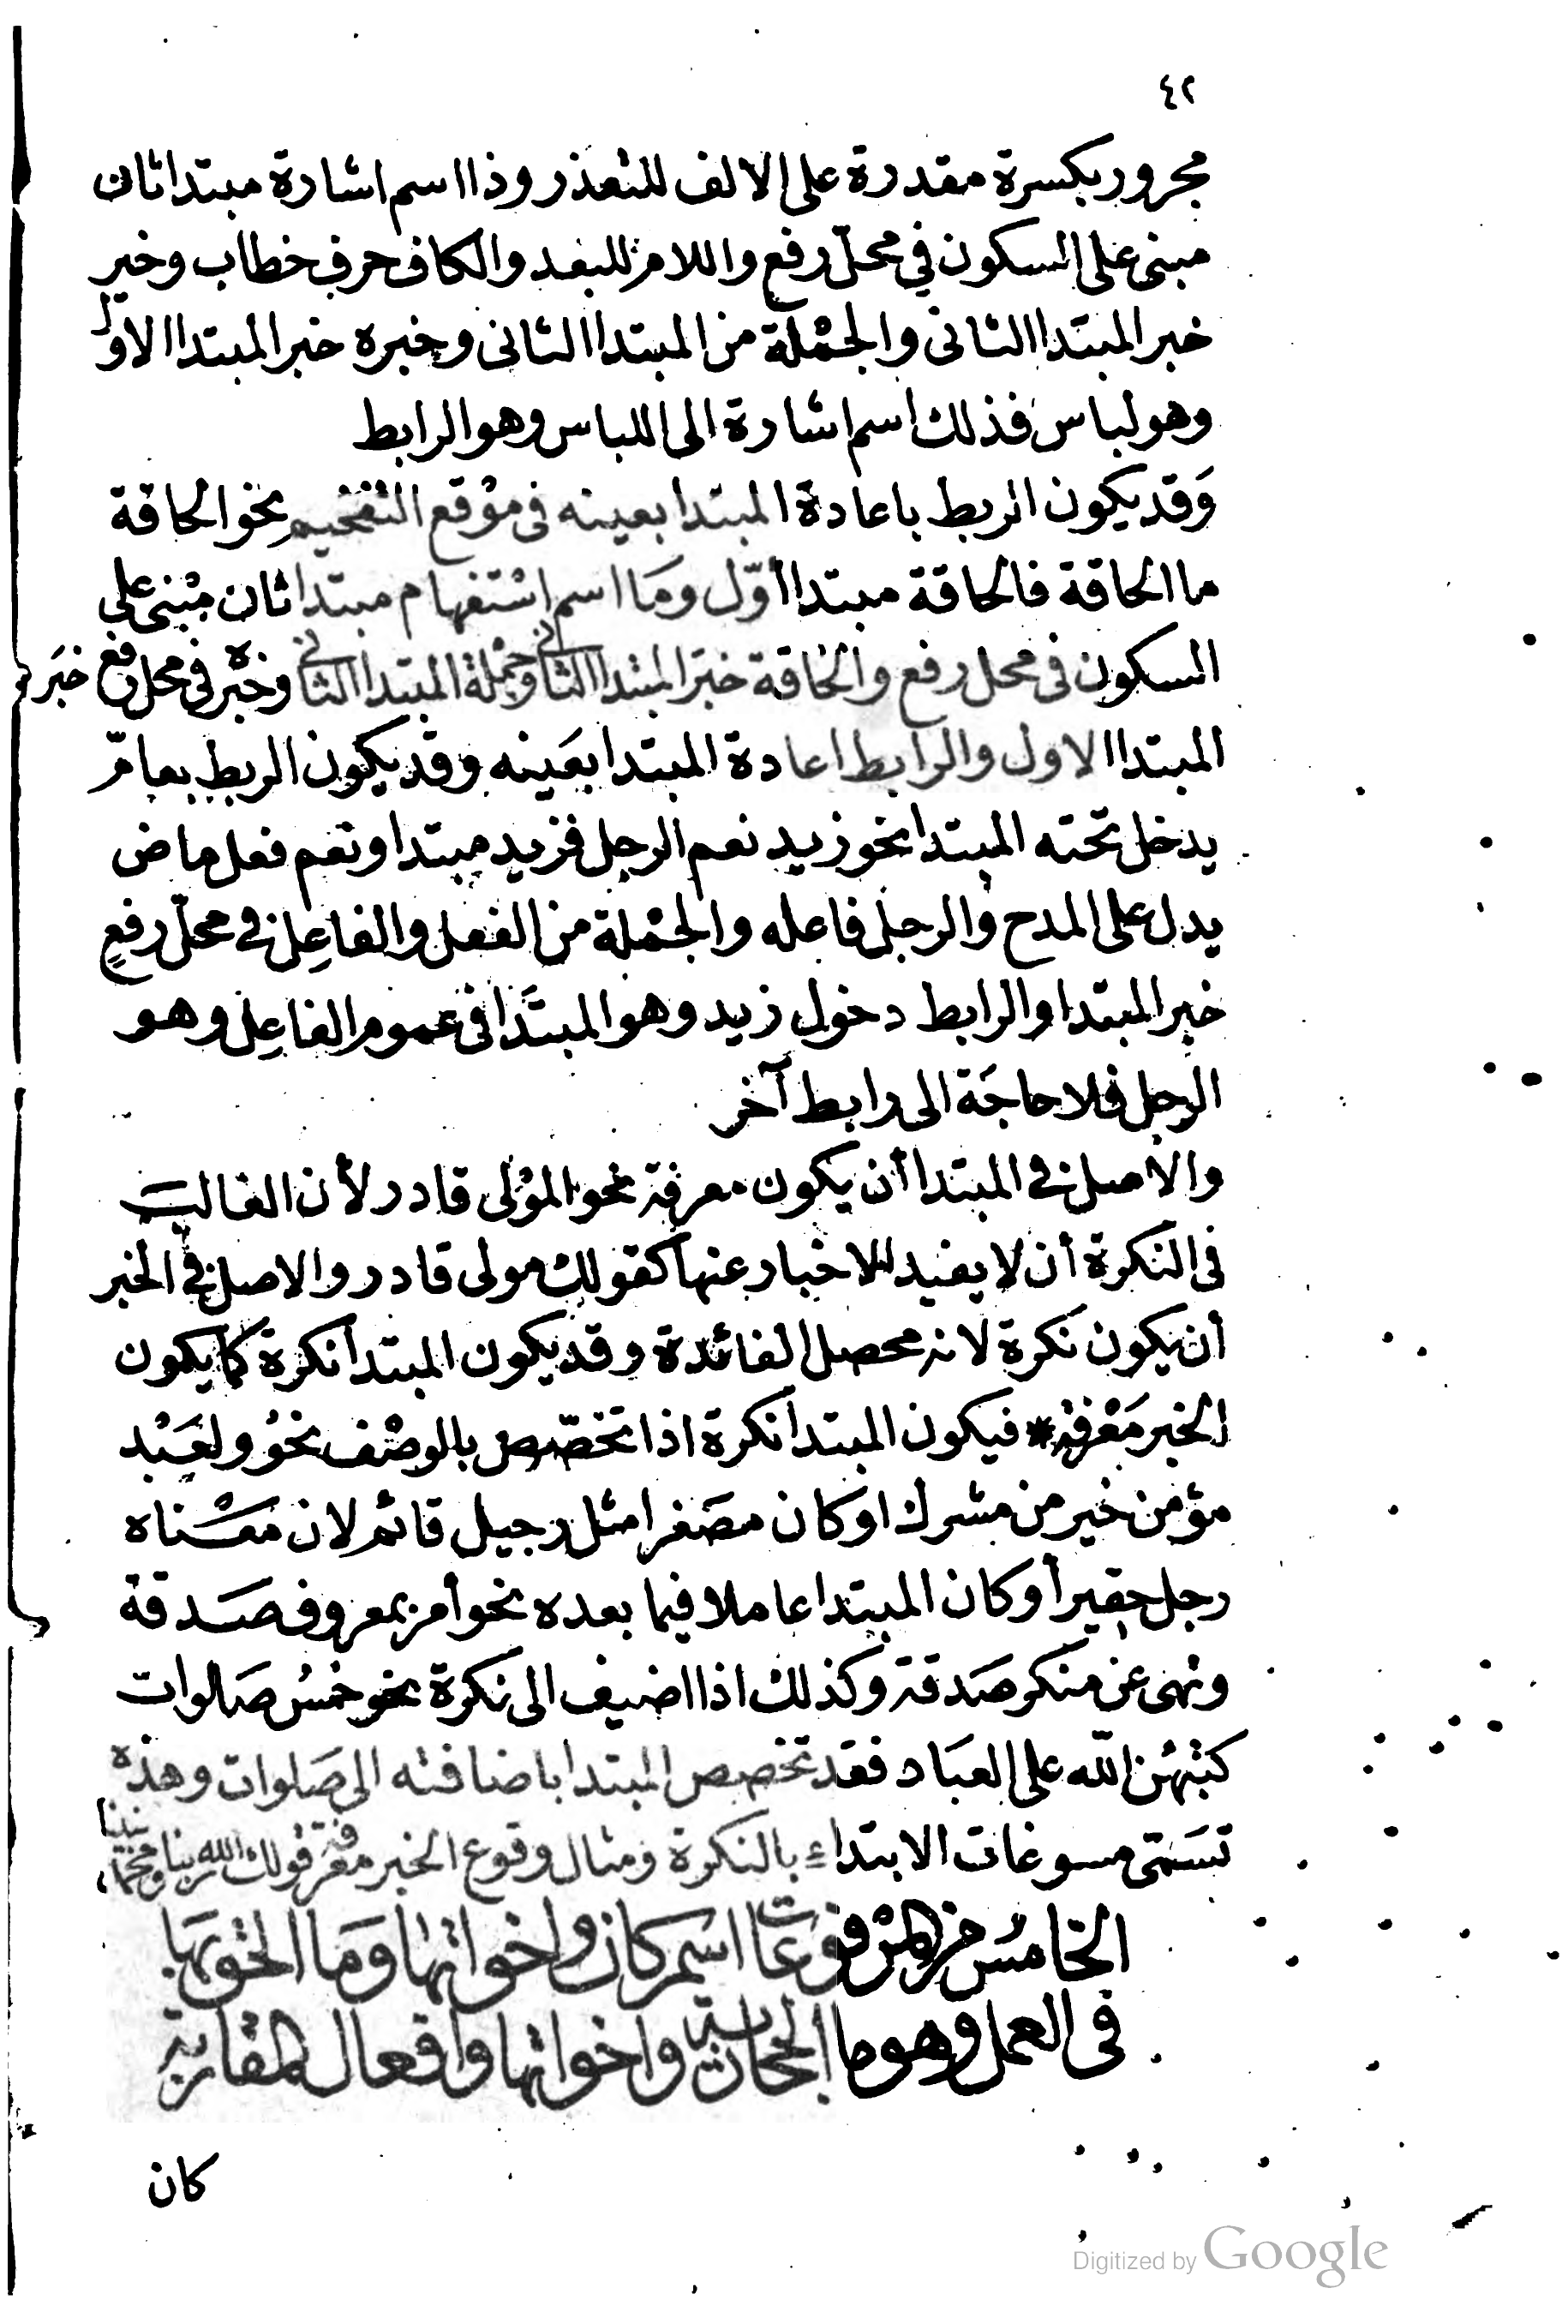 ٤٢
مجرور بكسرة مقدرة على الالف للتعذر وذا اسم اشارة مبتدا ثان
مبنى على السكون في محلّ رفع واللام للبعد والكاف حرف خطاب وخير
خبر المبتدا الثانى والجمْلة من المبتدا الثانى وخبره خبر المبتدا الاول
وهو لباس فذلك اسم اشارة الى اللباس وهو الرابط
وَقد يكون الربط باعادة المبتدا بعينه فى موْقع التفخيم نحو الحاقة
ما الحاقة فالحاقة مبتدا أوّل ومَا اسم اسْتفهام مبتدا ثان مبْنى على
السكون فى محل رفع والحاقة خبَر المبتدا الثانى وجمْلة المبتدا الثانى وخبره فى محل رفع خبَر
المبتدا الاول والرابط اعادة المبتدا بعَينه وقد يكون الربط بعامّ
يدخل تحته المبتدا نحو زيد نعم الرجل فزيد مبتدا ونعم فعل ماض
يدل على المدح والرجل فاعله والجمْلة من الفعل والفاعِل في محلّ رفعٍ
خبر المبتدا والرابط دخول زيد وهو المبتَدا فى عموم الفاعِل وهو
الرجل فلا حاجَة الى رابط آخر
والاصل في المبتدا أن يكون معرفة نحو الموْلى قادر لأن الغالب
فى النكرة أن لا يفيد الاخبار عنها كقولك مولى قادر والاصل في الخبر
أن يكون نَكرة لانه محصل الفائدة وقد يكون المبتدأ نكرة كما يكون
الخبر مَعْرفة * فيكون المبتدأ نكرة اذا تخصّص بالوصْف نحوُ ولعَبْد
مؤمن خير من مشرك او كان مصَغرا مثل رجيل قائم لان معْناه
رجل حقير أو كان المبتدا عاملا فيما بعده نحو أمر بمعروف صَدقة
ونهى عن منكر صَدقة وكذلك اذا اضيف الى نكرة نحو خمسُ صَلوات
كتبَهُن الله على العبَاد فقد تخصص المبتدا باضافته الى صَلوات وهذه
تسَمّى مسوغات الابتداء بالنكرة ومثال وقوع الخبر معْرفة قولك الله ربنا ومحمّد نبينا
الخامسُ من المرْفوعات اسْم كان واخواتها ومَا الحق بهَا
فى العمل وهو ما الحجازية واخواتها وافعال المقاربة
كان
Digitized by Google